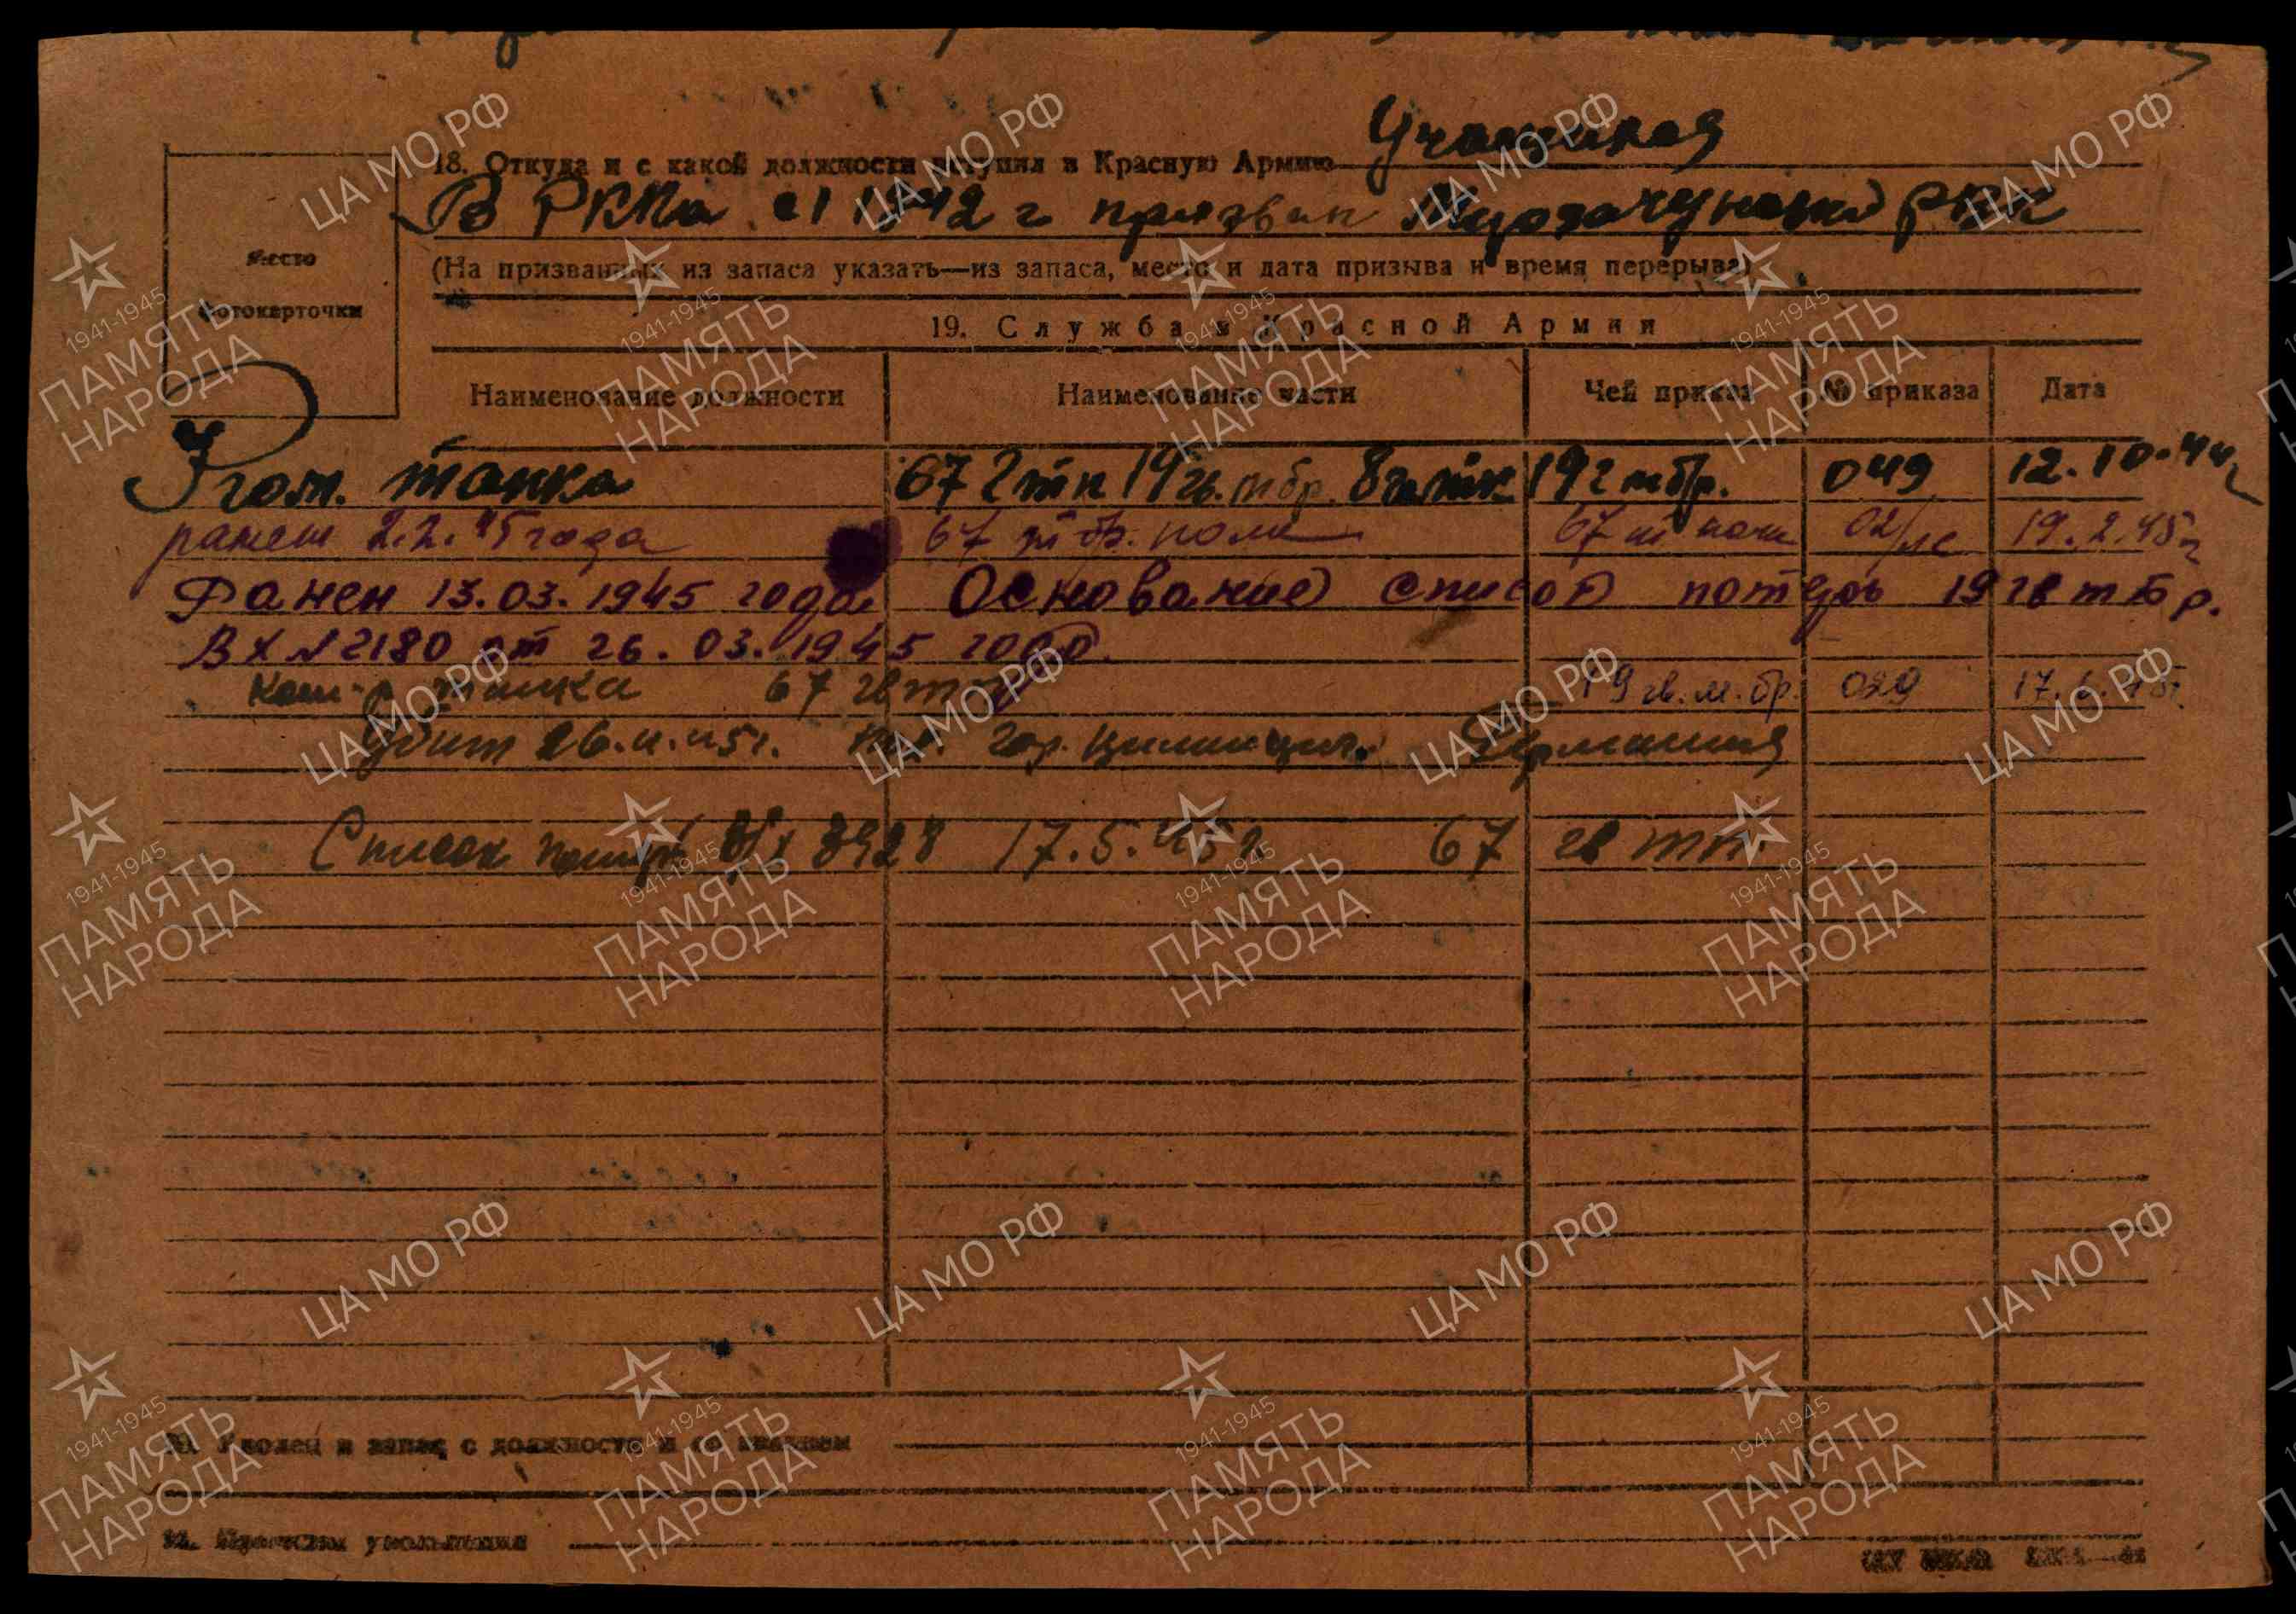 18. Откуда и с какой должности вступил в Красную Армию Учащийся
В РККА с 1 1942 г призван РВК
(На призванных из запаса указать—из запаса, место и дата призыва и время перерыва)
Место фотокарточки
19. Служба в Красной Армии
Наименование должности Наименование части Чей приказ № приказа Дата
Ком. танка 67 гтп 19 гв. тбр. 8 гв тк 19 г тбр. 049 12.10.44
ранен 2.2.45 года 67 полк 67 т полк 02/лс 19.2.45 г
Ранен 13.03.1945 года Основание список потерь 19 гв т Бр.
Вх № 2180 от 26.03.1945 года.
Ком-р танка 67 гв тп 19 гв. м. бр. 029 17. 45г.
Убит 26.4.45г. гор. Германия
Список потерь Вх 17.5.45 г 67 гв тп
Уволен в запас с должности и со званием
Причины увольнения
ЦА МО РФ
1941-1945
ПАМЯТЬ НАРОДА